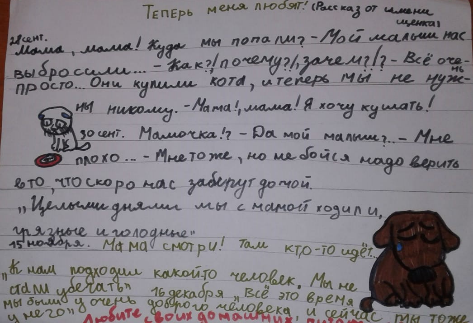 Теперь меня любят! (Рассказ от имени щенка)
28 сент.
Мама, мама! Куда мы попали? - Мой малыш нас
выбросили... - Как?! почему?!, зачем?!? - Всё оче-
просто... Они купили кота, и теперь мы не нуж-
ны никому. - Мама!, мама! Я хочу кушать!
30 сент. Мамочка!? - Да мой малыш?.. - Мне
плохо... - Мне тоже, но не бойся надо верить
в то, что скоро нас заберут домой.
"Целыми днями мы с мамой ходили,
грязные и голодные"
15 ноября. Мама смотри! Там кто-то идёт...
"К нам подходил какойто человек. Мы не
стали убегать" 16 декабря "Всё это время
мы были у очень доброго человека, и сейчас мы тоже
у него" Любите своих домашних